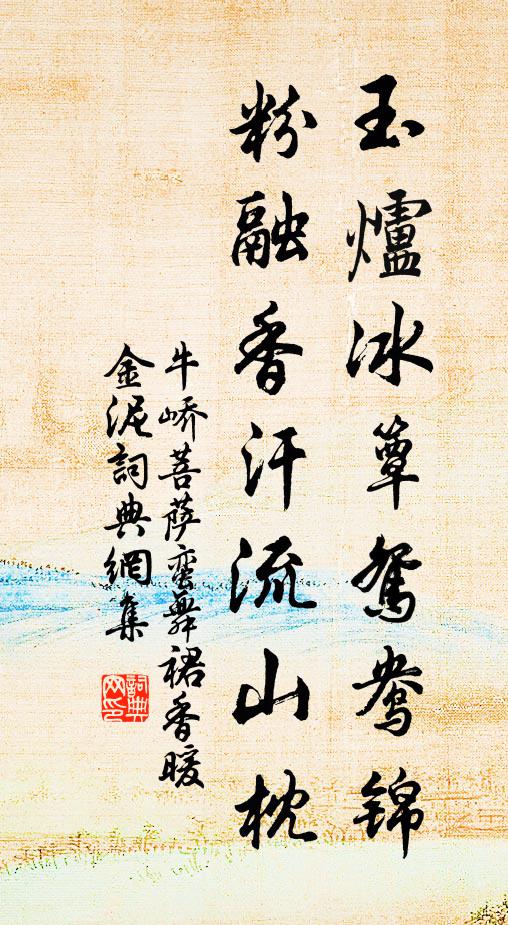 玉爐冰簟鴛鴦錦
粉融香汗流山枕
牛嶠菩薩蠻舞裙香暖
金泥詞典網集
詞典網印